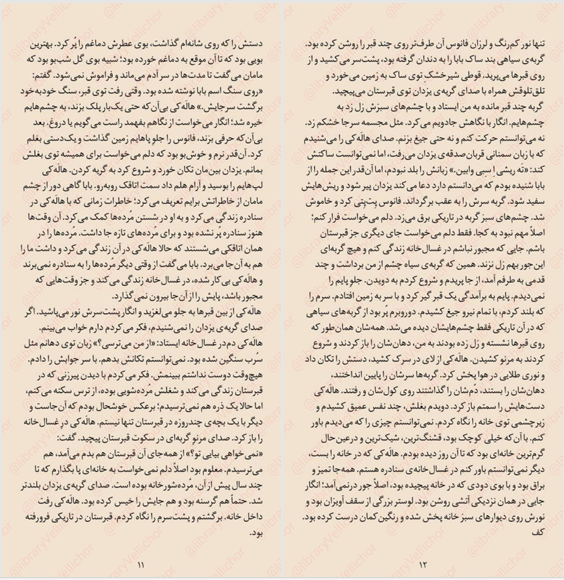 دستش را که روی شانه‌ام گذاشت، بوی عطرش دماغم را پُر کرد. بهترین
بویی بود که تا آن موقع به دماغم خورده بود؛ شبیه بوی گل شب‌بو بود که
مامان می‌گفت تا مدت‌ها در سر آدم می‌ماند و فراموش نمی‌شود. گفتم:
«روی سنگ اسم بابا نوشته شده بود. وقتی رفت توی قبر، سنگ خودبه‌خود
برگشت سرجایش.» هاله‌کی بی‌آن‌که حتی یک‌بار پلک بزند، به چشم‌هایم
خیره شد؛ انگار می‌خواست از نگاهم بفهمد راست می‌گویم یا دروغ. بعد
بی‌آن‌که حرفی بزند، فانوس را جلو پاهایم زمین گذاشت و یک‌دستی بغلم
کرد. آن‌قدر نرم و خوش‌بو بود که دلم می‌خواست برای همیشه توی بغلش
بمانم. یزدان بین‌مان تکان خورد و شروع کرد به گریه کردن. هاله‌کی
لپ‌هایم را بوسید و آرام هلم داد سمت اتاقک روبه‌رو. بابا گاهی دور از چشم
مامان از خاطراتش برایم تعریف می‌کرد؛ خاطرات زمانی که با هاله‌کی در
سنادره زندگی می‌کرد و به او در شستن مرده‌ها کمک می‌کرد. آن وقت‌ها
هنوز سنادره پُر نشده بود و برای مُرده‌های تازه جا داشت. مُرده‌ها را در
همان اتاقکی می‌شستند که حالا هاله‌کی در آن زندگی می‌کرد و داشت ما را
هم به آن‌جا می‌برد. بابا می‌گفت از وقتی دیگر مُرده‌ها را به سنادره نمی‌برند
و هاله‌کی بی کار شده، در غسال‌خانه زندگی می‌کند و جز وقت‌هایی که
مجبور باشد، پایش را از آن‌جا بیرون نمی‌گذارد.
هاله‌کی از بین قبرها به جلو می‌لغزید و انگار پشت‌سرش نور می‌پاشید. اگر
صدای گریه‌ی یزدان را نمی‌شنیدم، فکر می‌کردم دارم خواب می‌بینم.
هاله‌کی دم‌در غسال‌خانه ایستاد: «از من می‌ترسی؟» زبان توی دهانم مثل
سُرب سنگین شده بود. نمی‌توانستم تکانش بدهم. با سر جوابش را دادم.
هیچ‌وقت دوست نداشتم ببینمش. فکر می‌کردم با دیدن پیرزنی که در
قبرستان زندگی می‌کند و شغلش مُرده‌شویی بوده، از ترس سکته می‌کنم،
اما حالا یک ذره هم نمی‌ترسیدم؛ برعکس خوشحال بودم که آن‌جاست و
دیگر با یک بچه‌ی چندروزه در قبرستان تنها نیستم. هاله‌کی در غسال‌خانه
را باز کرد. صدای مرنوِ گربه‌ای در سکوت قبرستان پیچید. گفت:
«نمی‌خواهی بیایی تو؟» از همه‌جای آن قبرستان هم بدم می‌آمد، هم
می‌ترسیدم. معلوم بود اصلاً دلم نمی‌خواست به خانه‌ای پا بگذارم که تا
چند سال پیش از آن، مُرده‌شورخانه بوده است. صدای گریه‌ی یزدان بلندتر
شد. حتماً هم گرسنه بود و هم جایش را خیس کرده بود. هاله‌کی رفت
داخل خانه. برگشتم و پشت‌سرم را نگاه کردم. قبرستان در تاریکی فرورفته
بود.
۱۱
تنها نور کم‌رنگ و لرزان فانوس آن طرف‌تر روی چند قبر را روشن کرده بود.
گربه‌ی سیاهی بند ساک بابا را به دندان گرفته بود، پشت‌سر می‌کشید و از
روی قبرها می‌پرید. قوطی شیرخشک توی ساک به زمین می‌خورد و
تلق‌تلوقش همراه با صدای گریه‌ی یزدان توی قبرستان می‌پیچید.
گربه چند قبر مانده به من ایستاد و با چشم‌های سبزش زل زد به
چشم‌هایم. انگار با نگاهش جادویم می‌کرد. مثل مجسمه سرجا خشکم زد.
نه می‌توانستم حرکت کنم و نه حتی جیغ بزنم. صدای هاله‌کی را می‌شنیدم
که با زبان سمنانی قربان‌صدقه‌ی یزدان می‌رفت، اما نمی‌توانست ساکتش
کند: «ته ریشی اِسبی وابین.» زبانش را بلد نبودم، اما آن‌قدر این جمله را از
بابا شنیده بودم که می‌دانستم دارد دعا می‌کند یزدان پیر شود و ریش‌هایش
سفید شود. گربه سرش را به عقب برگرداند. فانوس پت‌پتی کرد و خاموش
شد. چشم‌های سبز گربه در تاریکی برق می‌زد. دلم می‌خواست فرار کنم؛
اصلاً مهم نبود به کجا. فقط دلم می‌خواست جای دیگری جز قبرستان
باشم. جایی که مجبور نباشم در غسال‌خانه زندگی کنم و هیچ گربه‌ای
این‌جور بهم زل نزند. همین که گربه‌ی سیاه چشم از من برداشت و چند
قدمی به طرفم آمد، از جا پریدم و شروع کردم به دویدن. جلو پایم را
نمی‌دیدم. پایم به برآمدگی یک قبر گیر کرد و با سر به زمین افتادم. سرم را
که بلند کردم، با تمام نیرو جیغ کشیدم. دوروبرم پُر بود از گربه‌های سیاهی
که در آن تاریکی فقط چشم‌هایشان دیده می‌شد. همه‌شان همان‌طور که
روی قبرها نشسته و زل زده بودند به من، دهان‌شان را باز کردند و شروع
کردند به مرنو کشیدن. هاله‌کی از لای در سرک کشید، دستش را تکان داد
و نوری طلایی در هوا پخش کرد. گربه‌ها سرشان را پایین انداختند،
دهان‌شان را بستند، دُم‌شان را گذاشتند روی کول‌شان و رفتند. هاله‌کی
دست‌هایش را سمتم باز کرد. دویدم بغلش، چند نفس عمیق کشیدم و
زیرچشمی توی خانه را نگاه کردم. نمی‌توانستم چیزی را که می‌دیدم باور
کنم. با آن‌که خیلی کوچک بود، قشنگ‌ترین، شیک‌ترین و درعین‌حال
گرم‌ترین خانه‌ای بود که تا آن روز دیده بودم. هاله‌کی که در خانه را بست،
دیگر نمی‌توانستم باور کنم در غسال‌خانه‌ی سنادره هستم. همه‌جا تمیز و
براق بود و با بوی دودی که در خانه پیچیده بود، اصلاً جور درنمی‌آمد؛ انگار
جایی در همان نزدیکی آتشی روشن بود. لوستر بزرگی از سقف آویزان بود و
نورش روی دیوارهای سبز خانه پخش شده و رنگین‌کمان درست کرده بود.
کف
۱۲